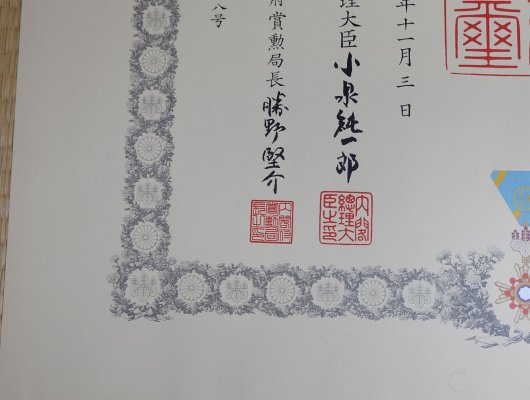 年十一月三日
璽
理大臣 小泉純一郎
内閣總理大臣之印
府賞勲局長 勝野堅介
内閣府賞勲局長之印
八号